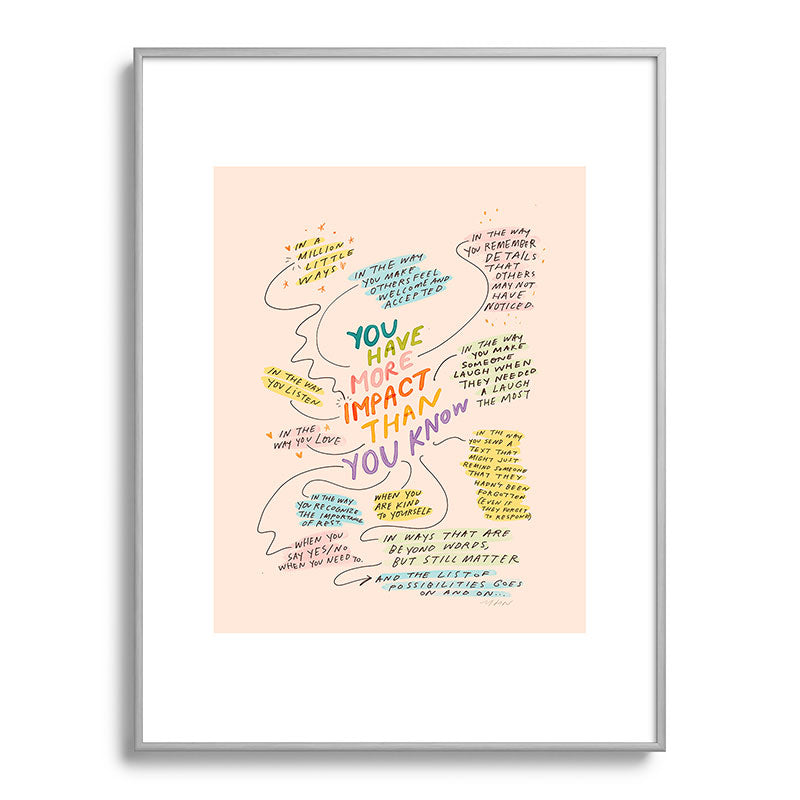 IN A
MILLION
LITTLE
WAYS
IN THE WAY
YOU MAKE
OTHERS FEEL
WELCOME AND
ACCEPTED
IN THE WAY
YOU REMEMBER
DETAILS
THAT
OTHERS
MAY NOT
HAVE
NOTICED.
YOU
HAVE
MORE
IMPACT
THAN
YOU KNOW
IN THE WAY
YOU MAKE
SOMEONE
LAUGH WHEN
THEY NEEDED
A LAUGH
THE MOST
IN THE WAY
YOU LISTEN
IN THE
WAY YOU LOVE
IN THE WAY
YOU SEND A
TEXT THAT
MIGHT JUST
REMIND SOMEONE
THAT THEY
HADN'T BEEN
FORGOTTEN
(EVEN IF
THEY FORGET
TO RESPOND)
IN THE WAY
YOU RECOGNIZE
THE IMPORTANCE
OF REST.
WHEN YOU
ARE KIND
TO YOURSELF
WHEN YOU
SAY YES/NO
WHEN YOU NEED TO.
IN WAYS THAT ARE
BEYOND WORDS,
BUT STILL MATTER
AND THE LIST OF
POSSIBILITIES GOES
ON AND ON...
MHN